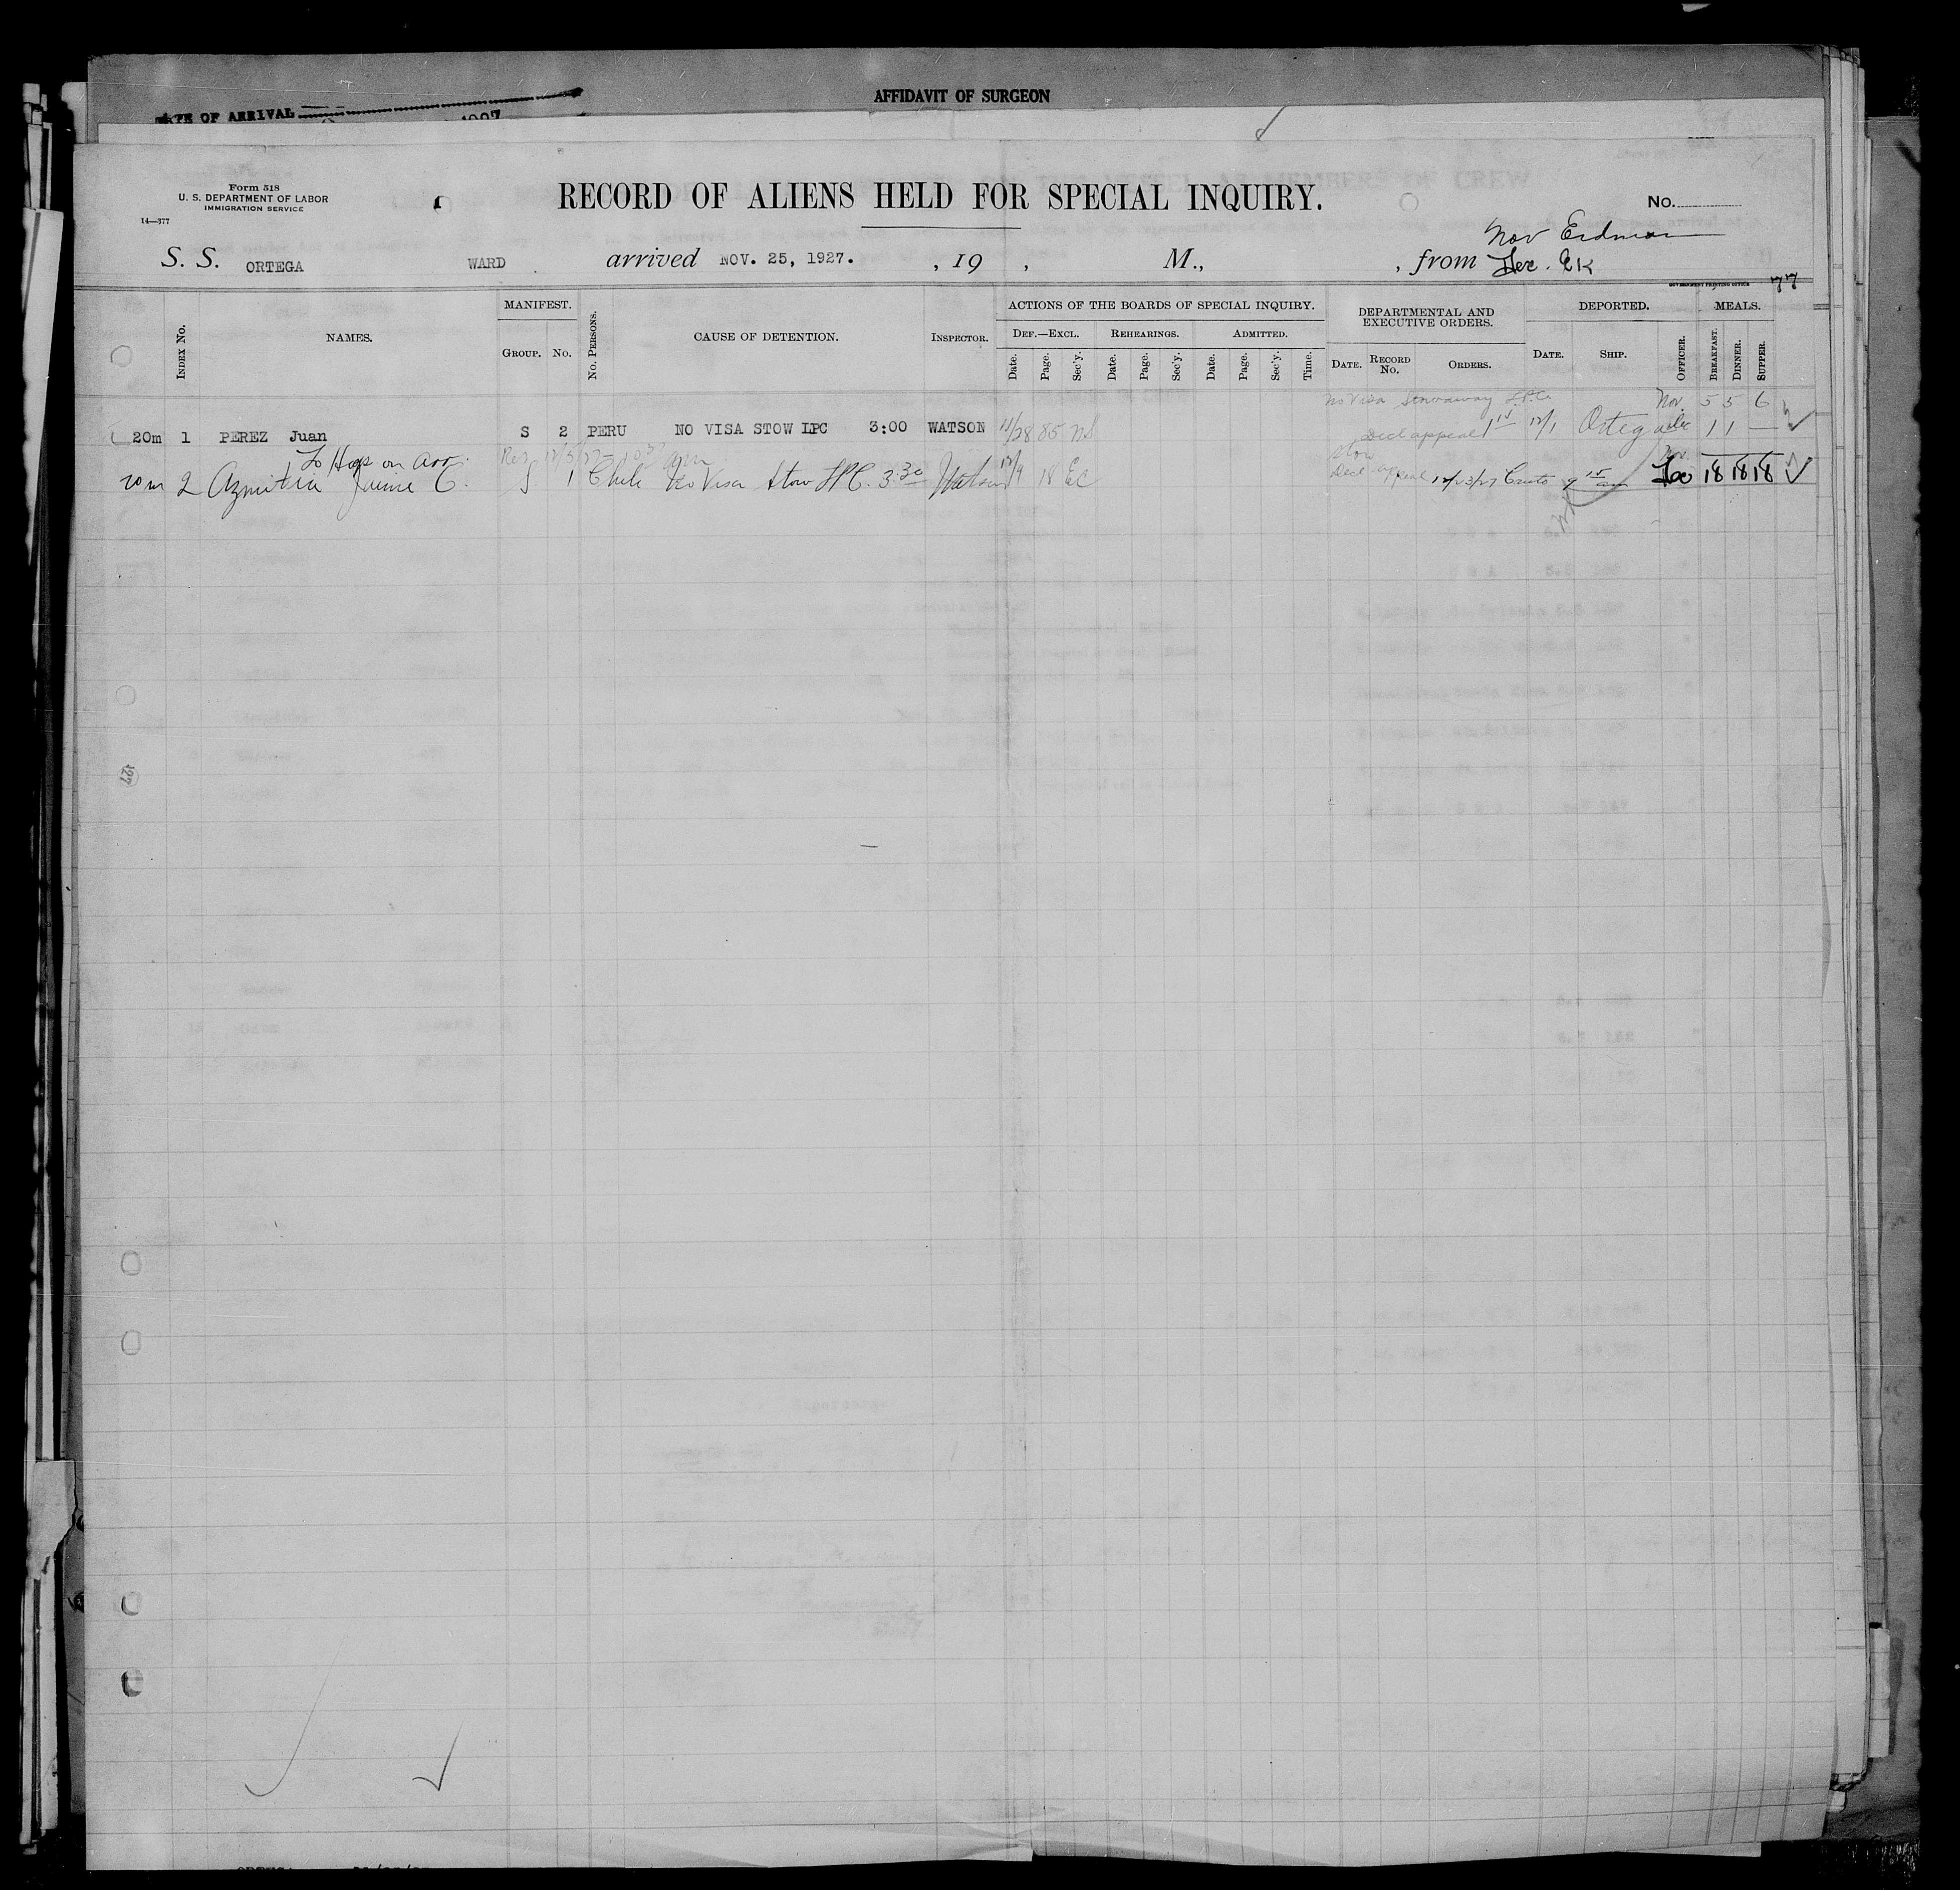 AFFIDAVIT OF SURGEON
DATE OF ARRIVAL
Form 518
U. S. DEPARTMENT OF LABOR
IMMIGRATION SERVICE
14—377
RECORD OF ALIENS HELD FOR SPECIAL INQUIRY.
No.
Nov Erdman
S. S. ORTEGA WARD arrived NOV. 25, 1927. , 19 , M., , from Dec. EK
GOVERNMENT PRINTING OFFICE 77
Index No. NAMES. MANIFEST. Group. No. No. Persons. CAUSE OF DETENTION. Inspector. ACTIONS OF THE BOARDS OF SPECIAL INQUIRY. DEPARTMENTAL AND EXECUTIVE ORDERS. DEPORTED. MEALS.
Def.—Excl. Rehearings. Admitted.
Date. Page. Sec'y. Date. Page. Sec'y. Date. Page. Sec'y. Time. Date. Record No. Orders. Date. Ship. Officer. Breakfast. Dinner. Supper.
No Visa Stowaway L.P.C. Nov 5 5 6
20m 1 PEREZ Juan S 2 PERU NO VISA STOW LPC 3:00 WATSON 11/28 85 Decl appeal 12/1 Ortega Dec 1 1 —
To Hosp on arr. Stow Nov.
20m 2 Azmitia Jaime C. S 1 Chile No Visa Stow LPC. 3:30 Watson 12/9 18 Ec Decl appeal 12/23/27 Dec 18 18 18
127